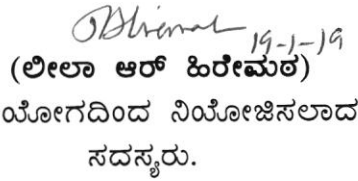 19-1-19
(ಲೀಲಾ ಆರ್ ಹಿರೇಮಠ)
ಯೋಗದಿಂದ ನಿಯೋಜಿಸಲಾದ
ಸದಸ್ಯರು.